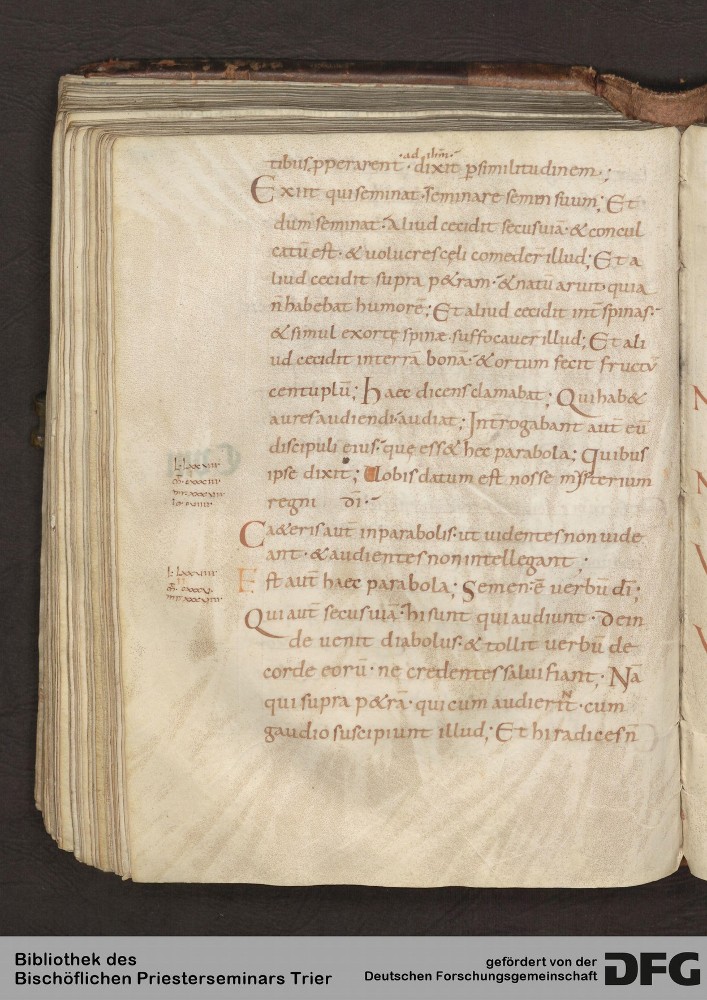 ad ihm·
tibus pperarent· dixit psimilitudinem·;
Exiit qui seminat· seminare semen suum; Et
dum seminat· Aliud cecidit secus uiā· & concul
catū est· & uolucres cęli comeder̄ illud; Et a
liud cecidit supra p&ram· & natū aruit· quia
n̄ habebat humorē; Et aliud cecidit int̄ spinas·
& simul exortę spinę suffocauer̄ illud; Et ali
ud cecidit in terrā bonā· & ortum fecit fructū
centuplū; Haec dicens clamabat; Qui hab&
aures audiendi· audiat; Int̄rogabant aut̄ eū
discipuli eius· que ess& hec parabola; Quibus
ipse dixit; Uobis datum est nosse mysterium
regni dī·
Ca&eris aut̄ in parabolis· ut uidentes non uide
ant· & audientes non intellegant;
Est aut̄ haec parabola; Semen· ē uerbū dī;
Qui aut̄ secus uiā· hi sunt qui audiunt· Dein
de uenit diabolus· & tollit uerbū de
corde eorū· ne credentes salui fiant; Nā
qui supra p&rā· qui cum audierint· cum
gaudio suscipiunt illud; Et hi radices n̄
Bibliothek des
Bischöflichen Priesterseminars Trier
gefördert von der
Deutschen Forschungsgemeinschaft
DFG